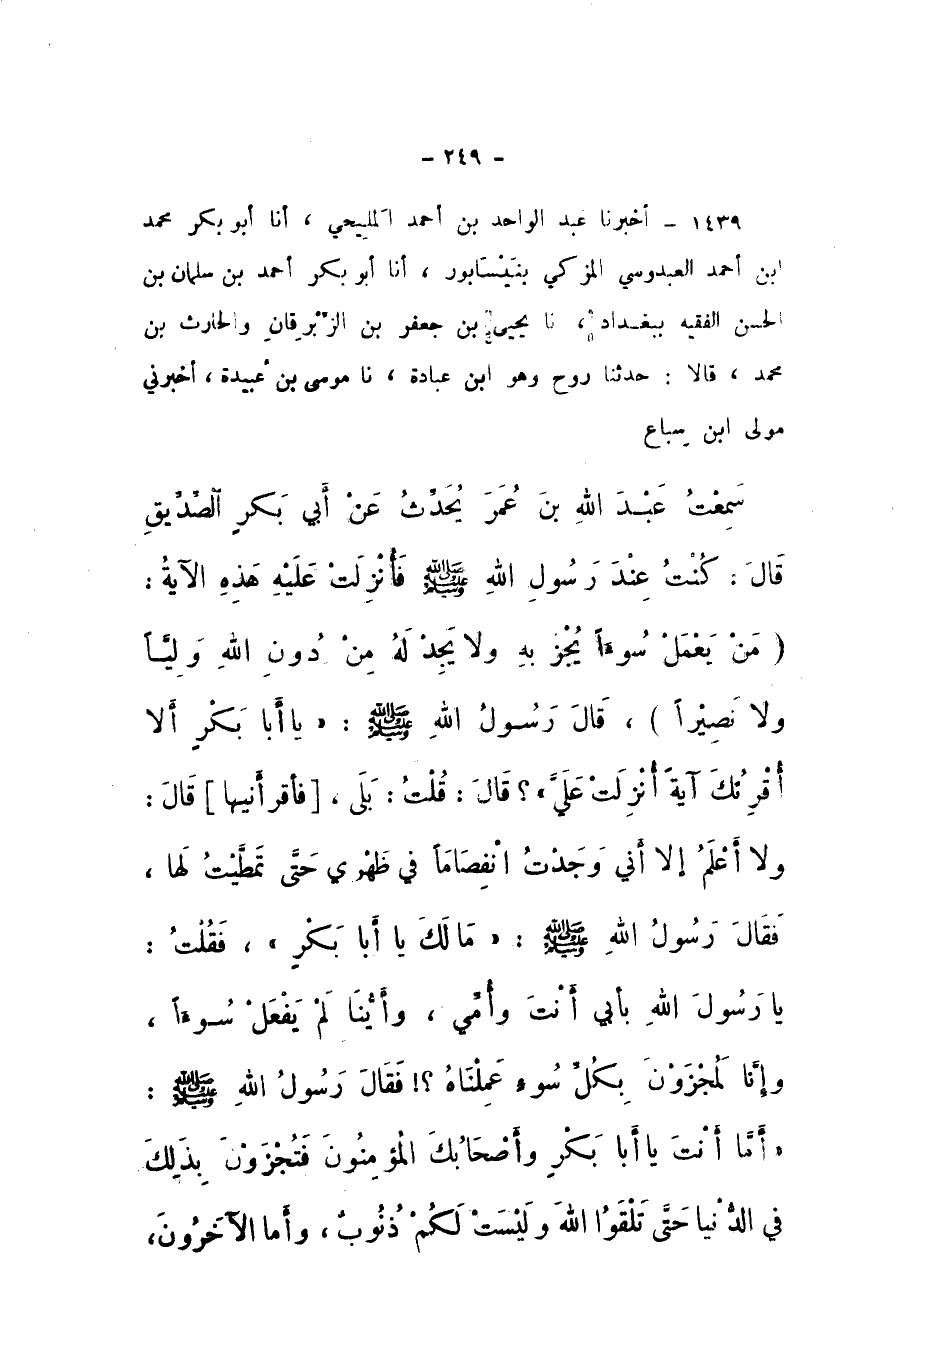 - ٢٤٩ -
١٤٣٩ - أخبرنا عبد الواحد بن أحمد المليحي ، أنا أبو بكر محمد
ابن أحمد العبدوسي المزكي بنَيْسَابور ، أنا أبو بكر أحمد بن سلمان بن
الحسن الفقيه ببغداد ، نا يحيى بن جعفر بن الزِّبْرِقانِ والحارث بن
محمد ، قالا : حدثنا روح وهو ابن عبادة ، نا موسى بن عُبيدة ، أخبرني
مولى ابن سِباع
سَمِعْتُ عَبْدَ اللهِ بنَ عُمَرَ يُحَدِّثُ عَنْ أَبي بَكرٍ ٱلصِّدِّيقِ
قَالَ : كُنْتُ عِنْدَ رَسُولِ اللهِ ﷺ فَأُنْزِلَتْ عَلَيْهِ هَذِهِ الآيَةُ :
( مَنْ يَعْمَلْ سُوءاً يُجْزَ بهِ ولا يَجِدْ لَهُ مِنْ دُونِ اللهِ وَلِيَّاً
ولا نَصِيْراً ) ، قَالَ رَسُولُ اللهِ ﷺ : « يا أَبا بَكْرٍ أَلا
أُقْرِئكَ آيَةً أُنْزِلَتْ عَلَيَّ » ؟ قَالَ : قُلْتُ : بَلَى ، [ فأقرأَنيها ] قَالَ :
ولا أَعْلَمُ إلا أَني وَجَدْتُ انْفِصَامَاً في ظَهْرِي حَتَّى تَمَطَّيْتُ لَها ،
فَقَالَ رَسُولُ اللهِ ﷺ : « مَا لَكَ يا أَبا بَكْرٍ » ، فَقُلْتُ :
يا رَسُولَ اللهِ بأَبي أَنْتَ وأُمِّي ، وأَيُّنَا لَمْ يَفْعَلْ سُوءاً ،
وإنَّا لَمُجْزَوْنَ بِكُلِّ سُوءٍ عَمِلْنَاهُ ؟! فَقَالَ رَسُولُ اللهِ ﷺ :
« أَمَّا أَنْتَ يا أَبا بَكْرٍ وأَصْحَابُكَ الْمُؤمِنُونَ فَتُجْزَوْنَ بِذَلِكَ
في الدُّنْيا حَتَّى تَلْقَوُا اللهَ ولَيْسَتْ لَكُمْ ذُنُوبٌ ، وأَما الآخَرُونَ ،